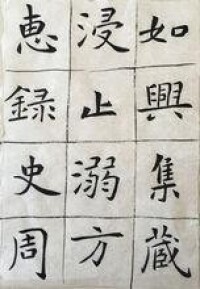 如興集蔵
浸止溺方
恵録史周